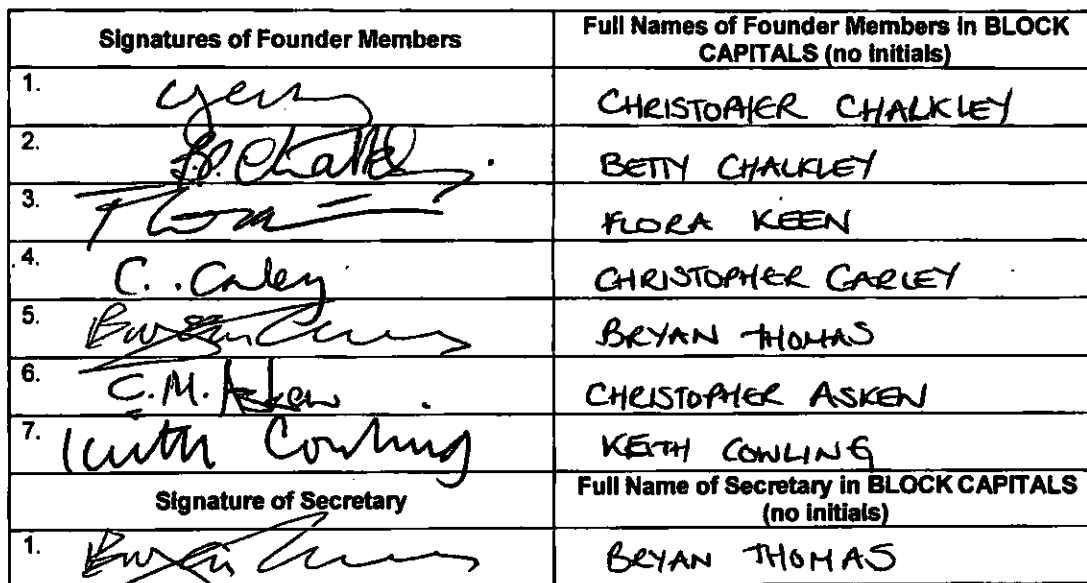 Signatures of Founder Members
Full Names of Founder Members in BLOCK
CAPITALS (no initials)
1.
CHRISTOPHER CHALKLEY
2.
BETTY CHALKLEY
3. Flora
FLORA KEEN
4. C. Carley
CHRISTOPHER CARLEY
5.
BRYAN THOMAS
6. C.M. Asken
CHRISTOPHER ASKEN
7. Keith Cowling
KEITH COWLING
Signature of Secretary
Full Name of Secretary in BLOCK CAPITALS
(no initials)
1.
BRYAN THOMAS